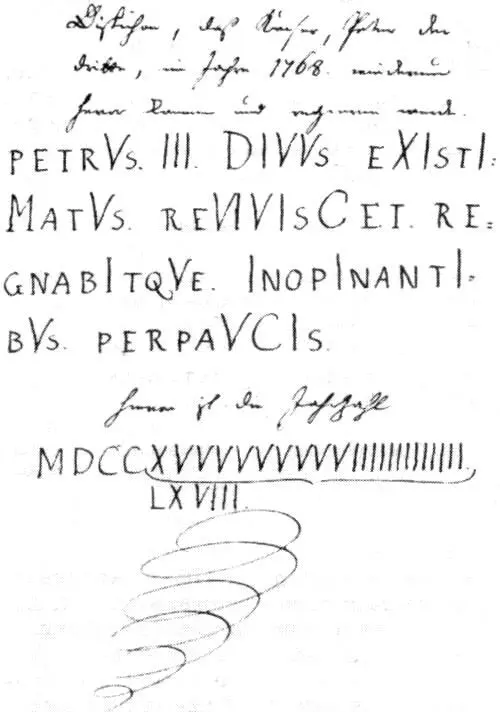 Distichon, daß Kayser, Peter der
dritte, im Jahre 1768. wiederum
hervor kommen und regieren werde.
PETRVs. III. DIVVs. EXIsTI=
MATVs. REVIVIsCET. RE=
GNABITQVE. INOPINANTI=
BVs. PERPAVCIs.
ist die Jahrzahl
MDCCXVVVVVVVVVIIIIIIIIIIIII.
LXVIII.